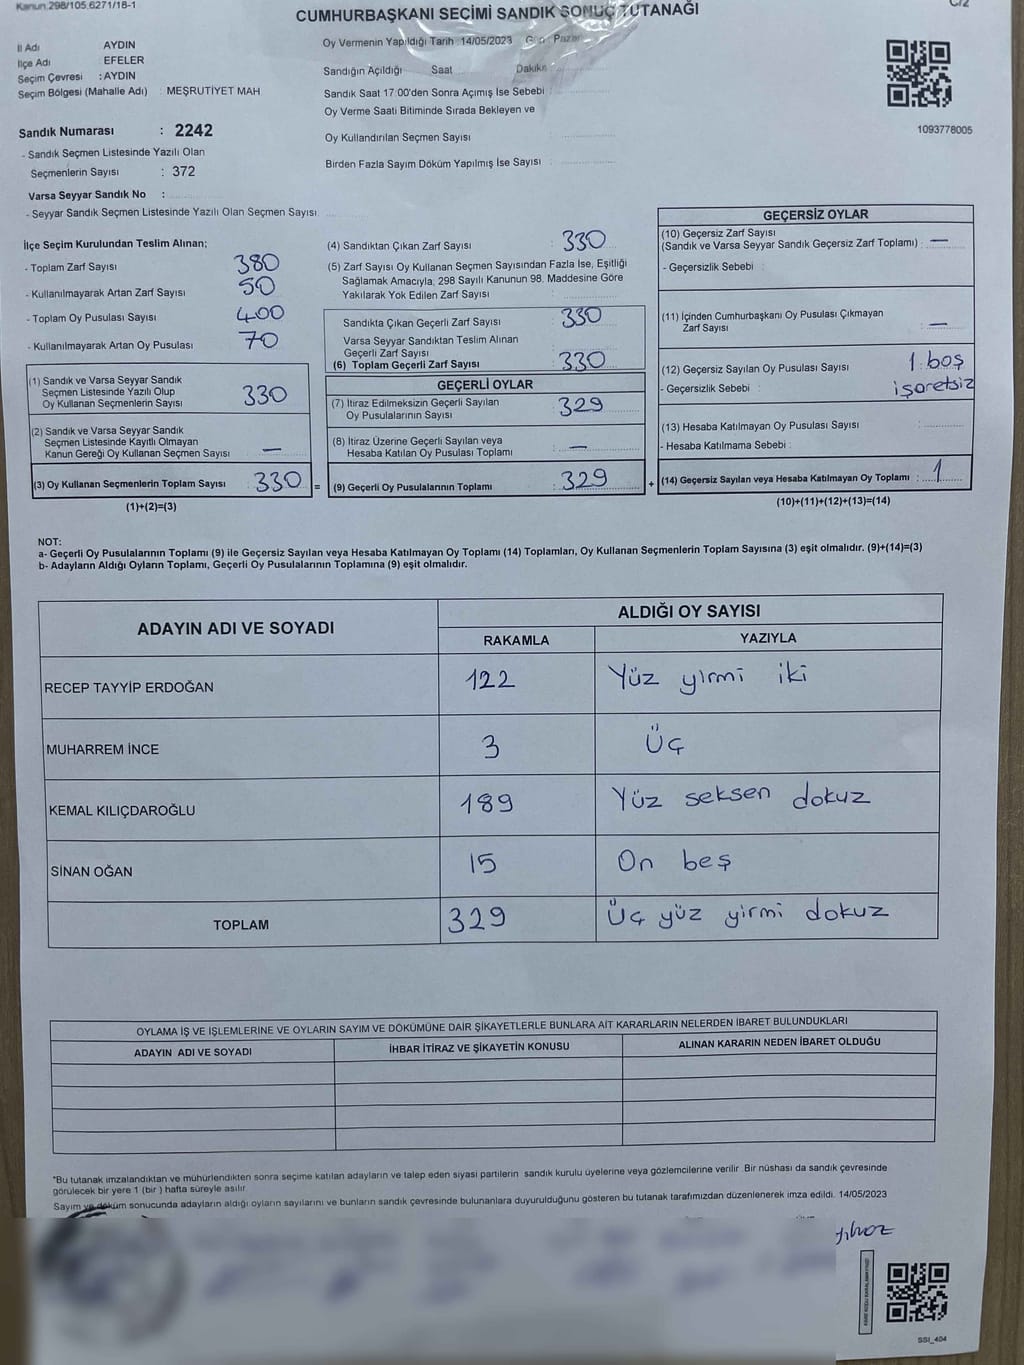 Kanun:298/105.6271/18-1
CUMHURBAŞKANI SECİMİ SANDIK SONUÇ TUTANAĞI
C/2
İl Adı AYDIN
İlçe Adı EFELER
Seçim Çevresi : AYDIN
Seçim Bölgesi (Mahalle Adı) : MEŞRUTİYET MAH
Sandık Numarası : 2242
- Sandık Seçmen Listesinde Yazılı Olan
Seçmenlerin Sayısı : 372
Varsa Seyyar Sandık No :
- Seyyar Sandık Seçmen Listesinde Yazılı Olan Seçmen Sayısı:
Oy Vermenin Yapıldığı Tarih :14/05/2023 Gün : Pazar
Sandığın Açıldığı Saat Dakika
Sandık Saat 17:00'den Sonra Açımış İse Sebebi :
Oy Verme Saati Bitiminde Sırada Bekleyen ve
Oy Kullandırılan Seçmen Sayısı :
Birden Fazla Sayım Döküm Yapılmış İse Sayısı :
1093778005
İlçe Seçim Kurulundan Teslim Alınan;
- Toplam Zarf Sayısı 380
- Kullanılmayarak Artan Zarf Sayısı 50
- Toplam Oy Pusulası Sayısı 400
- Kullanılmayarak Artan Oy Pusulası 70
(1) Sandık ve Varsa Seyyar Sandık
Seçmen Listesinde Yazılı Olup
Oy Kullanan Seçmenlerin Sayısı : 330
(2) Sandık ve Varsa Seyyar Sandık
Seçmen Listesinde Kayıtlı Olmayan
Kanun Gereği Oy Kullanan Seçmen Sayısı : —
(3) Oy Kullanan Seçmenlerin Toplam Sayısı : 330 =
(1)+(2)=(3)
(4) Sandıktan Çıkan Zarf Sayısı : 330
(5) Zarf Sayısı Oy Kullanan Seçmen Sayısından Fazla İse, Eşitliği
Sağlamak Amacıyla, 298 Sayılı Kanunun 98. Maddesine Göre
Yakılarak Yok Edilen Zarf Sayısı :
Sandıkta Çıkan Geçerli Zarf Sayısı : 330
Varsa Seyyar Sandıktan Teslim Alınan
Geçerli Zarf Sayısı :
(6) Toplam Geçerli Zarf Sayısı : 330
GEÇERLİ OYLAR
(7) İtiraz Edilmeksizin Geçerli Sayılan
Oy Pusulalarının Sayısı : 329
(8) İtiraz Üzerine Geçerli Sayılan veya
Hesaba Katılan Oy Pusulası Toplamı : —
(9) Geçerli Oy Pusulalarının Toplamı : 329 +
GEÇERSİZ OYLAR
(10) Geçersiz Zarf Sayısı
(Sandık ve Varsa Seyyar Sandık Geçersiz Zarf Toplamı) : —
- Geçersizlik Sebebi :
(11) İçinden Cumhurbaşkanı Oy Pusulası Çıkmayan
Zarf Sayısı : —
(12) Geçersiz Sayılan Oy Pusulası Sayısı : 1 boş
- Geçersizlik Sebebi : işaretsiz
(13) Hesaba Katılmayan Oy Pusulası Sayısı :
- Hesaba Katılmama Sebebi :
(14) Geçersiz Sayılan veya Hesaba Katılmayan Oy Toplamı : 1
(10)+(11)+(12)+(13)=(14)
NOT:
a- Geçerli Oy Pusulalarının Toplamı (9) ile Geçersiz Sayılan veya Hesaba Katılmayan Oy Toplamı (14) Toplamları, Oy Kullanan Seçmenlerin Toplam Sayısına (3) eşit olmalıdır. (9)+(14)=(3)
b- Adayların Aldığı Oyların Toplamı, Geçerli Oy Pusulalarının Toplamına (9) eşit olmalıdır.
ADAYIN ADI VE SOYADI ALDIĞI OY SAYISI
RAKAMLA YAZIYLA
RECEP TAYYİP ERDOĞAN 122 Yüz yirmi iki
MUHARREM İNCE 3 Üç
KEMAL KILIÇDAROĞLU 189 Yüz seksen dokuz
SİNAN OĞAN 15 On beş
TOPLAM 329 Üç yüz yirmi dokuz
OYLAMA İŞ VE İŞLEMLERİNE VE OYLARIN SAYIM VE DÖKÜMÜNE DAİR ŞİKAYETLERLE BUNLARA AİT KARARLARIN NELERDEN İBARET BULUNDUKLARI
ADAYIN ADI VE SOYADI İHBAR İTİRAZ VE ŞİKAYETİN KONUSU ALINAN KARARIN NEDEN İBARET OLDUĞU
*Bu tutanak imzalandıktan ve mühürlendikten sonra seçime katılan adayların ve talep eden siyasi partilerin sandık kurulu üyelerine veya gözlemcilerine verilir. Bir nüshası da sandık çevresinde
görülecek bir yere 1 (bir) hafta süreyle asılır.
Sayım ve döküm sonucunda adayların aldığı oyların sayılarını ve bunların sandık çevresinde bulunanlara duyurulduğunu gösteren bu tutanak tarafımızdan düzenlenerek imza edildi. 14/05/2023
SSI_404